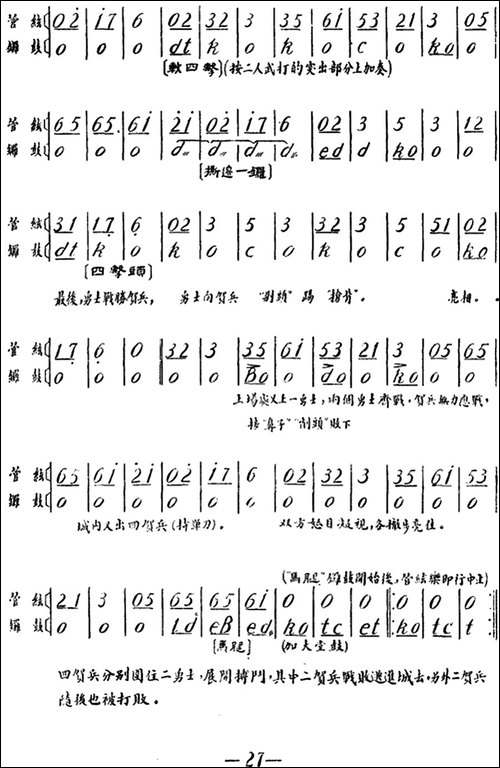 管絃 0 2̇ | i̇ 7 | 6 | 0 2 | 3 2 | 3 | 3 5 | 6 i | 5 3 | 2 1 | 3 | 0 5
鑼鼓 0 | 0 | 0 | dt | k | 0 | k | 0 | c | 0 | k0 | 0
[數四擊] (按二人武打的突出部分上加奏)
管絃 6 5 | 6 5. | 6 i | 2̇ i | 0 2̇ | i 7 | 6 | 0 2 | 3 | 5 | 3 | 1 2
鑼鼓 0 | 0 | 0 | d | d | d | d | ed | d | k0 | 0 | 0
[撕邊一鑼]
管絃 3 1 | 1 7̣ | 6̣ | 0 2 | 3 | 5 | 3 | 3 2 | 3 | 5 | 5 1 | 0 2
鑼鼓 dt | k | 0 | k | 0 | c | 0 | k | 0 | c | 0 | k0
[四擊頭]
最後,勇士戰勝賀兵, 勇士向賀兵 "削頭" 踢 "搶背"。 亮相。
管絃 1 7̣ | 6̣ | 0 | 3 2 | 3 | 3 5 | 6 i | 5 3 | 2 1 | 3 | 0 5 | 6 5
鑼鼓 0 | 0 | 0 | 0 | 0 | B0 | 0 | d0 | 0 | k0 | 0 | 0
上場門又上一勇士,兩個勇士齊戰,賀兵無力應戰,
接"鼻子""削頭"敗下
管絃 6 5 | 6 i | 2̇ i | 0 2̇ | i 7 | 6 | 0 2 | 3 2 | 3 | 3 5 | 6 i | 5 3
鑼鼓 0 | 0 | 0 | 0 | 0 | 0 | 0 | 0 | 0 | 0 | 0 | 0
城內又出四賀兵(持單刀)。 双方怒目凝視,各撤步亮住。
("馬腿"鑼鼓開始後,管絃樂即行中止)
管絃 2 1 | 3 | 0 5 | 6 5 | 6 5 | 6 i | 0 | 0 | 0 | 0 | 0 | 0
鑼鼓 0 | 0 | 0 | ld | eB | ed | k0 | tc | et | k0 | tc | t
[馬腿] (加大堂鼓)
四賀兵分别圍住二勇士,展開搏鬥,其中二賀兵戰敗退進城去,另外二賀兵
隨後也被打敗。
—27—